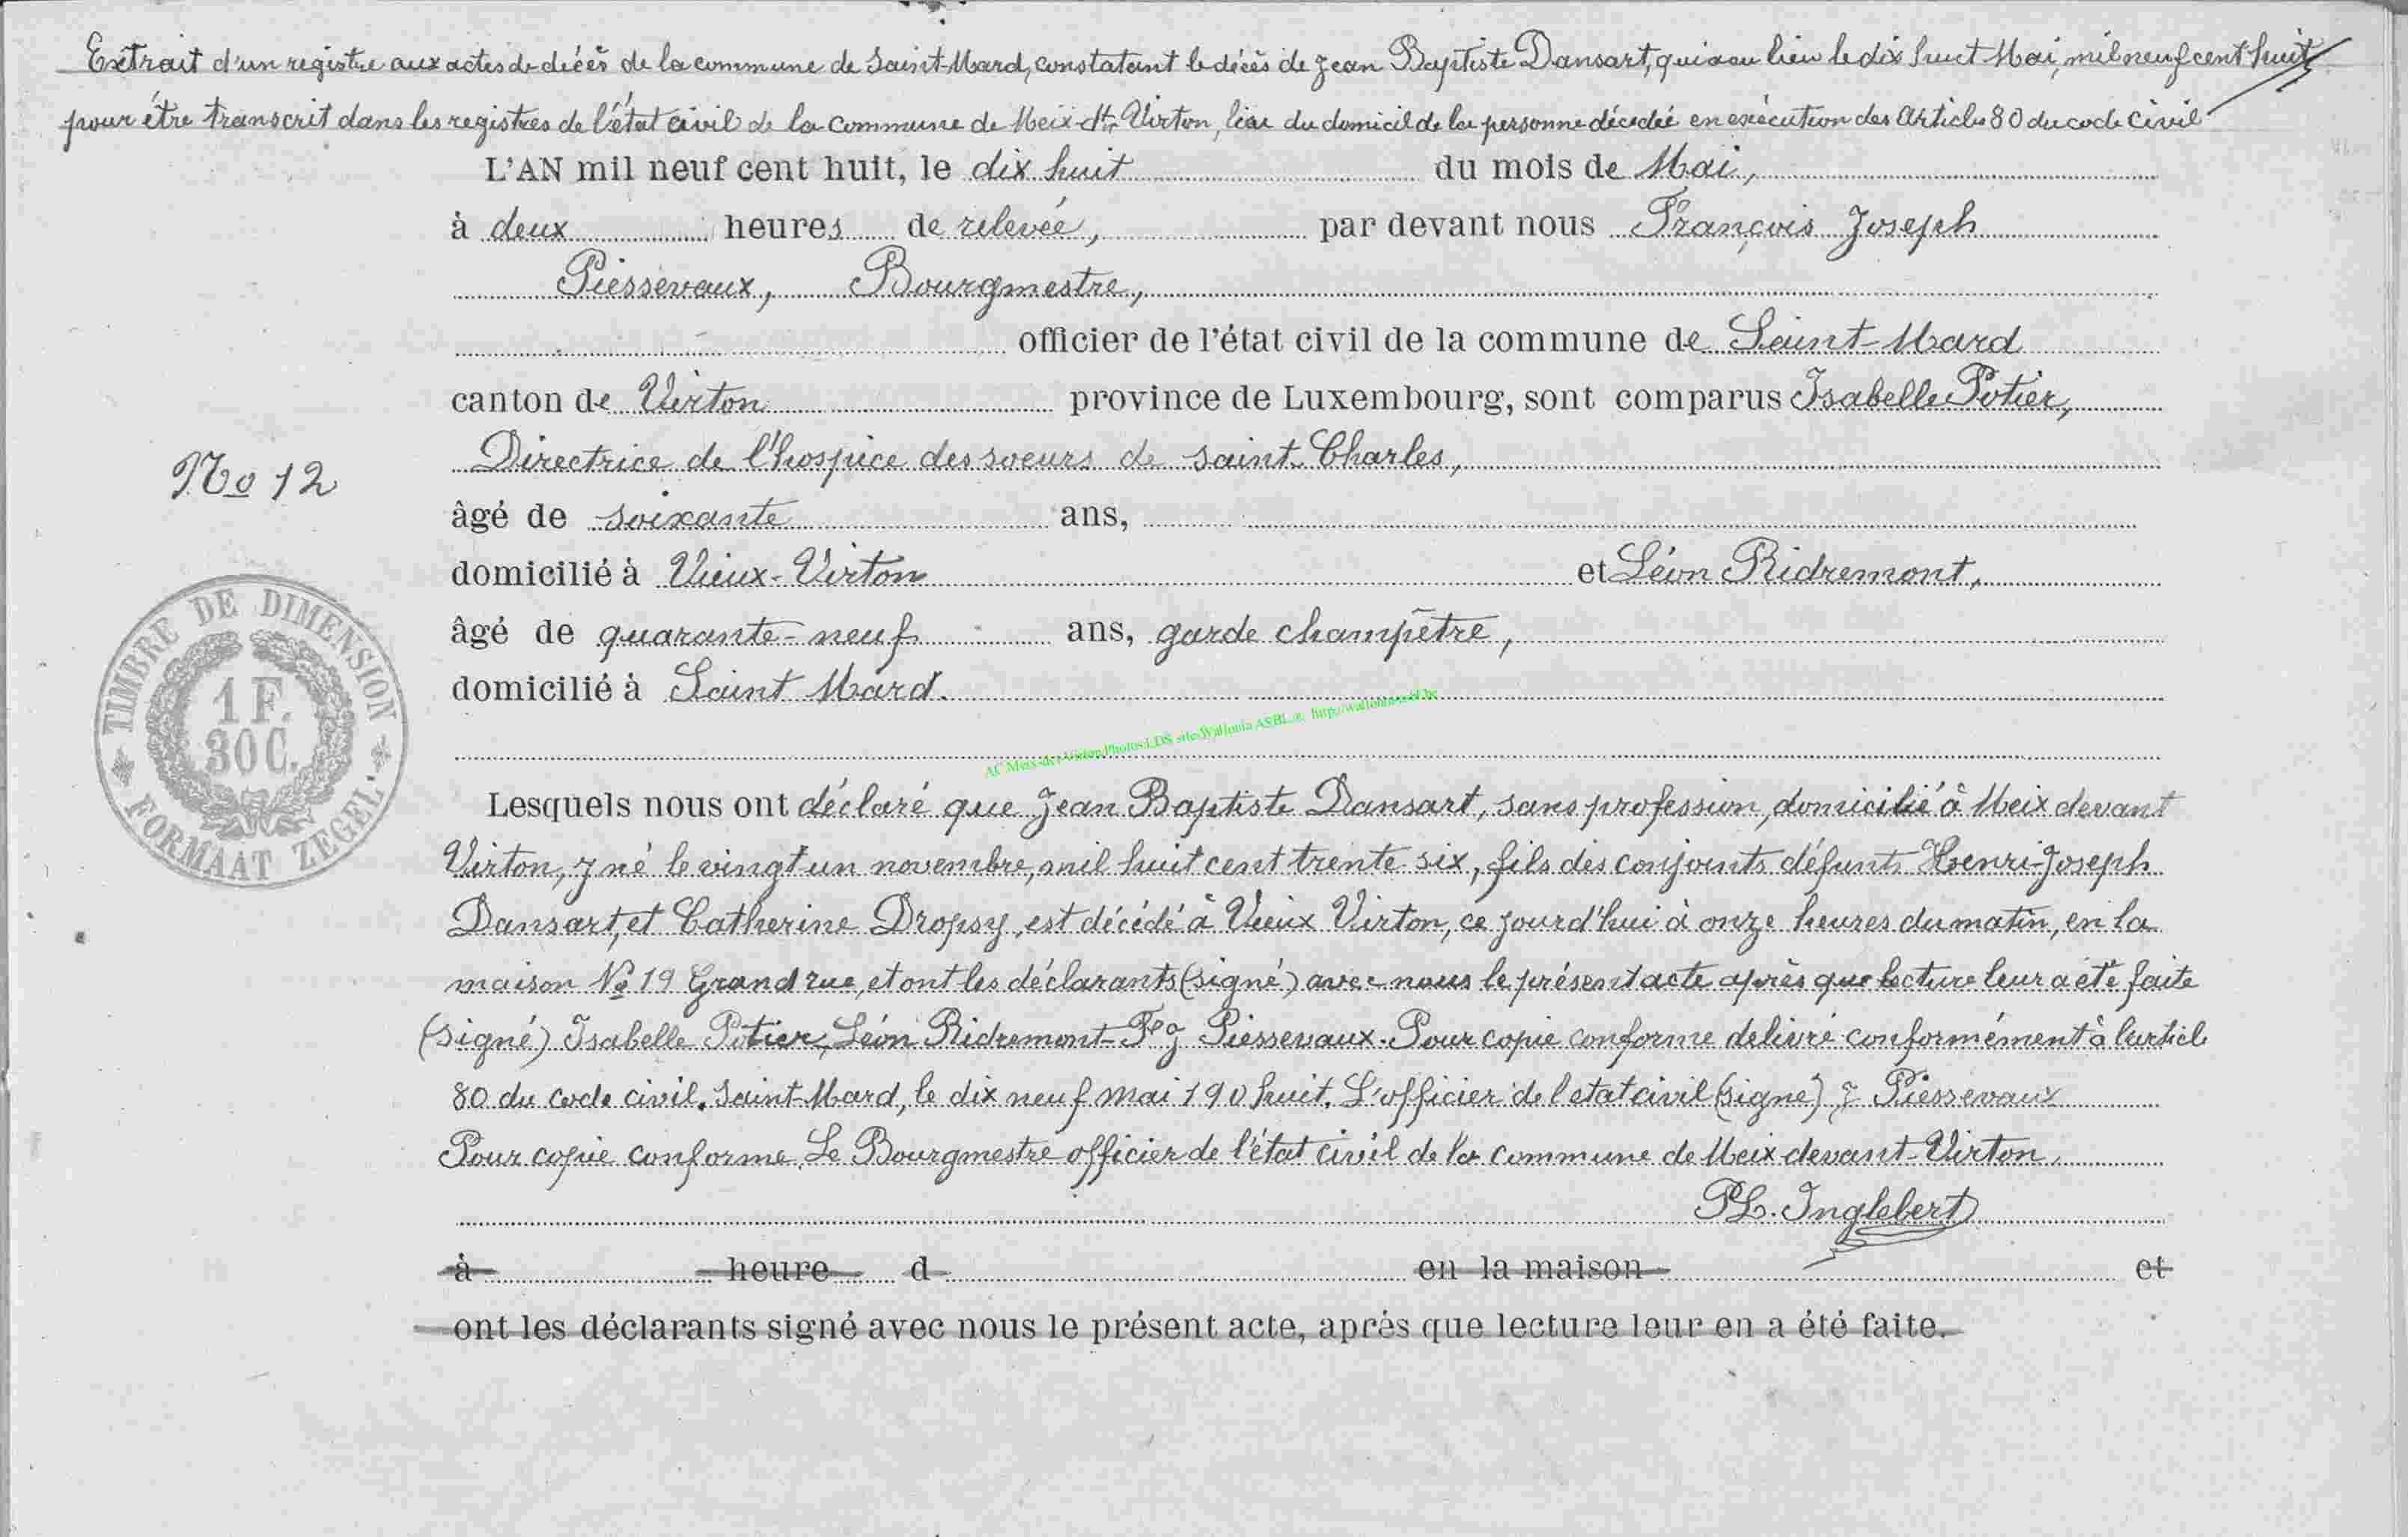 Extrait d'un registre aux actes de décès de la commune de Saint-Mard, constatant le décès de Jean Baptiste Dansart, qui a eu lieu le dix huit Mai, mil neuf cent huit
pour être transcrit dans les registres de l'état civil de la commune de Meix-dt-Virton, lieu du domicil de la personne décédée en exécution des Article 80 du code civil
L'AN mil neuf cent huit, le dix huit du mois de Mai,
à deux heures de relevée, par devant nous François Joseph
Piessevaux, Bourgmestre,
officier de l'état civil de la commune de Saint-Mard
canton de Virton province de Luxembourg, sont comparus Isabelle Potier,
Directrice de l'hospice des soeurs de saint Charles,
No 12
âgé de soixante ans,
domicilié à Vieux-Virton et Léon Ridremont,
âgé de quarante-neuf ans, garde champêtre,
domicilié à Saint Mard.
TIMBRE DE DIMENSION
1 F.
30 C.
FORMAAT ZEGEL.
AC Meix-dev-Virton Photos LDS site Wallonia ASBL
Lesquels nous ont déclaré que Jean Baptiste Dansart, sans profession, domicilié à Meix devant
Virton, y né le vingt un novembre, mil huit cent trente six, fils des conjoints défunts Henri-Joseph
Dansart, et Catherine Dropsy, est décédé à Vieux Virton, ce jourd'hui à onze heures du matin, en la
maison No 19 Grand rue, et ont les déclarants (signé) avec nous le présent acte après que lecture leur a été faite
(signé) Isabelle Potier, Léon Ridremont - F. J Piessevaux. Pour copie conforme delivré conformément à l'articl
80 du code civil. Saint-Mard, le dix neuf mai 190 huit. L'officier de l'etat civil (signé) J Piessevaux
Pour copie conforme, Le Bourgmestre officier de l'état civil de la commune de Meix devant-Virton.
Ph. Inglebert
à heure d en la maison et
ont les déclarants signé avec nous le présent acte, après que lecture leur en a été faite.